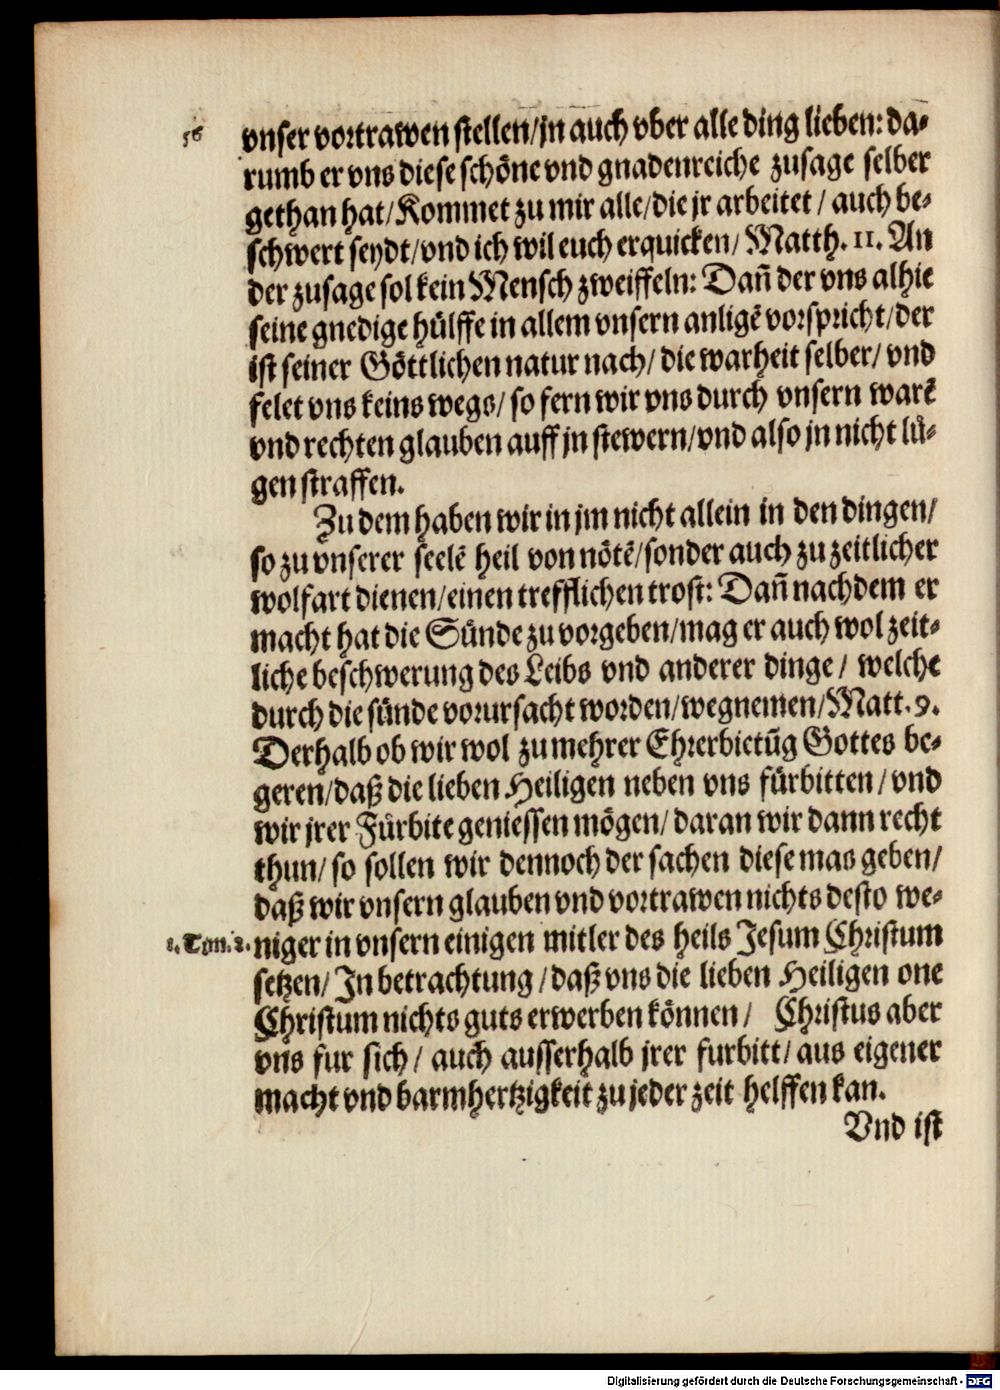 56
vnser vortrawen stellen/jn auch vber alle ding lieben: da-
rumb er vns diese schöne vnd gnadenreiche zusage selber
gethan hat/Kommet zu mir alle/die jr arbeitet / auch be-
schwert seydt/vnd ich wil euch erquicken/ Matth. 11. An
der zusage sol kein Mensch zweiffeln: Dañ der vns alhie
seine gnedige hülffe in allem vnsern anligẽ vorspricht/der
ist seiner Göttlichen natur nach/ die warheit selber/ vnd
felet vns keins wegs/ so fern wir vns durch vnsern warẽ
vnd rechten glauben auff jn stewern/vnd also jn nicht lü-
gen straffen.
Zu dem haben wir in jm nicht allein in den dingen/
so zu vnserer seelẽ heil von nötẽ/sonder auch zu zeitlicher
wolfart dienen/einen trefflichen trost: Dañ nachdem er
macht hat die Sünde zu vorgeben/mag er auch wol zeit-
liche beschwerung des Leibs vnd anderer dinge / welche
durch die sünde vorursacht worden/wegnemen/Matt. 9.
Derhalb ob wir wol zu mehrer Ehrerbietũg Gottes be-
geren/daß die lieben Heiligen neben vns fürbitten / vnd
wir jrer Fürbite geniessen mögen/ daran wir dann recht
thun/ so sollen wir dennoch der sachen diese mas geben/
daß wir vnsern glauben vnd vortrawen nichts desto we-
niger in vnsern einigen mitler des heils Jesum Christum
setzen/ In betrachtung / daß vns die lieben Heiligen one
Christum nichts guts erwerben können / Christus aber
vns fur sich / auch ausserhalb jrer furbitt/ aus eigener
macht vnd barmhertzigkeit zu jeder zeit helffen kan.
Vnd ist
Digitalisierung gefördert durch die Deutsche Forschungsgemeinschaft - DFG